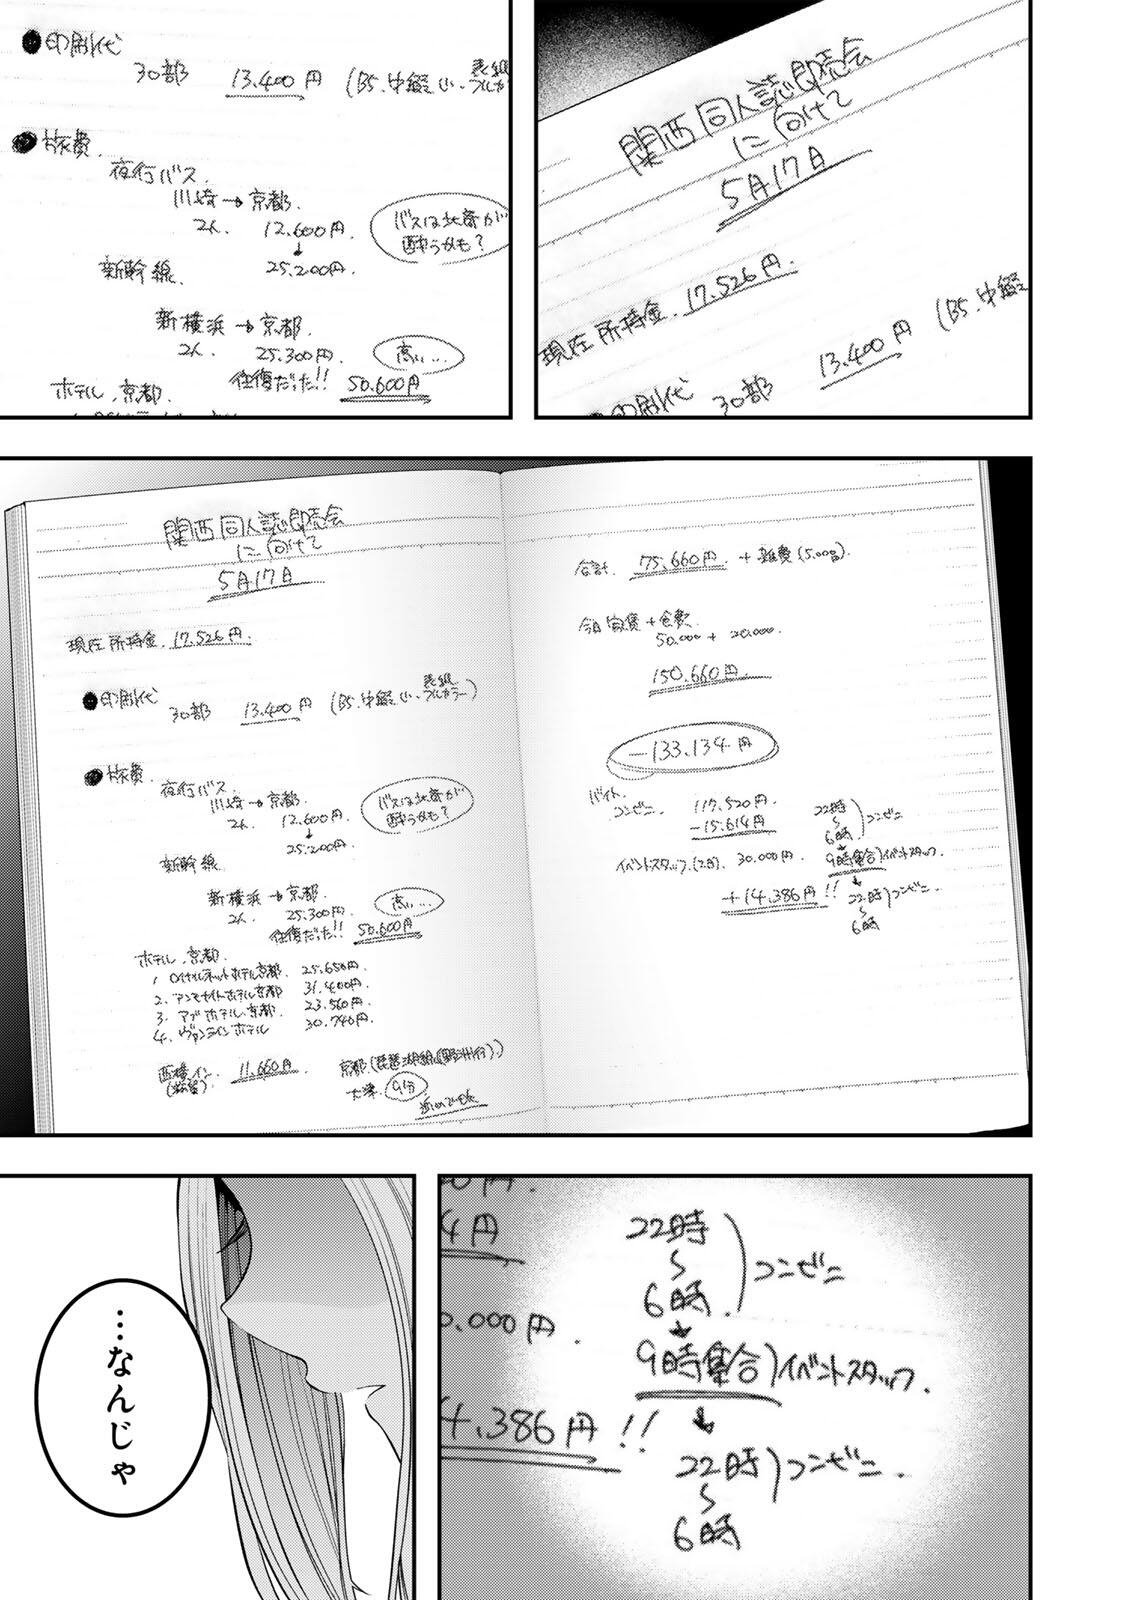 関西同人誌即売会
に向けて
5月17日
現在所持金 17.526円.
13.400円 (B5.中綴
●印刷代 30部
●印刷代
30部 13.400円 (B5.中綴じ.表紙フルカラー
●旅費.
夜行バス
川崎→京都.
2人. 12.600円.
↓
25.200円.
バスは北斎が
酔うかも?
新幹線
新横浜→京都.
2人. 25.300円.
高い...
往復だった!! 50.600円
ホテル.京都.
関西同人誌即売会
に向けて
5月17日
現在所持金 17.526円.
●印刷代
30部 13.400円 (B5.中綴じ.表紙フルカラー)
●旅費.
夜行バス
川崎→京都.
2人. 12.600円.
↓
25.200円.
バスは北斎が
酔うかも?
新幹線
新横浜→京都.
2人. 25.300円.
高い...
往復だった!! 50.600円
ホテル.京都.
1. ロイヤルネットホテル京都. 25.650円.
2. アンモナイトホテル京都 31.400円
3. アブホテル.京都. 23.560円.
4. ヴァンラインホテル 30.740円.
西横イン.
11.660円. 京都(琵琶湖線(野洲行).)
大津. 9分
合計. 75.660円 + 雑費(5.000).
今月家賃+食費.
50.000 + 20.000.
150.660円.
−133.134円
バイト.
コンビニ 117.520円.
−15.614円
イベントスタッフ.(2日). 30.000円.
+14.386円!!
22時
〜
6時.
)コンビニ
↓
9時集合)イベントスタッフ.
↓
22時
〜
6時
)コンビニ.
4円
0.000円.
4.386円!!
22時
〜
6時.
)コンビニ
↓
9時集合)イベントスタッフ.
↓
22時
〜
6時
)コンビニ.
…なんじゃ